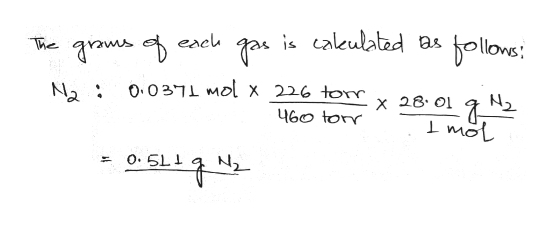 The grams of each gas is calculated as follows:
N2 : 0.0371 mol x 226 torr / 460 torr x 28.01 g N2 / 1 mol
= 0.511 g N2